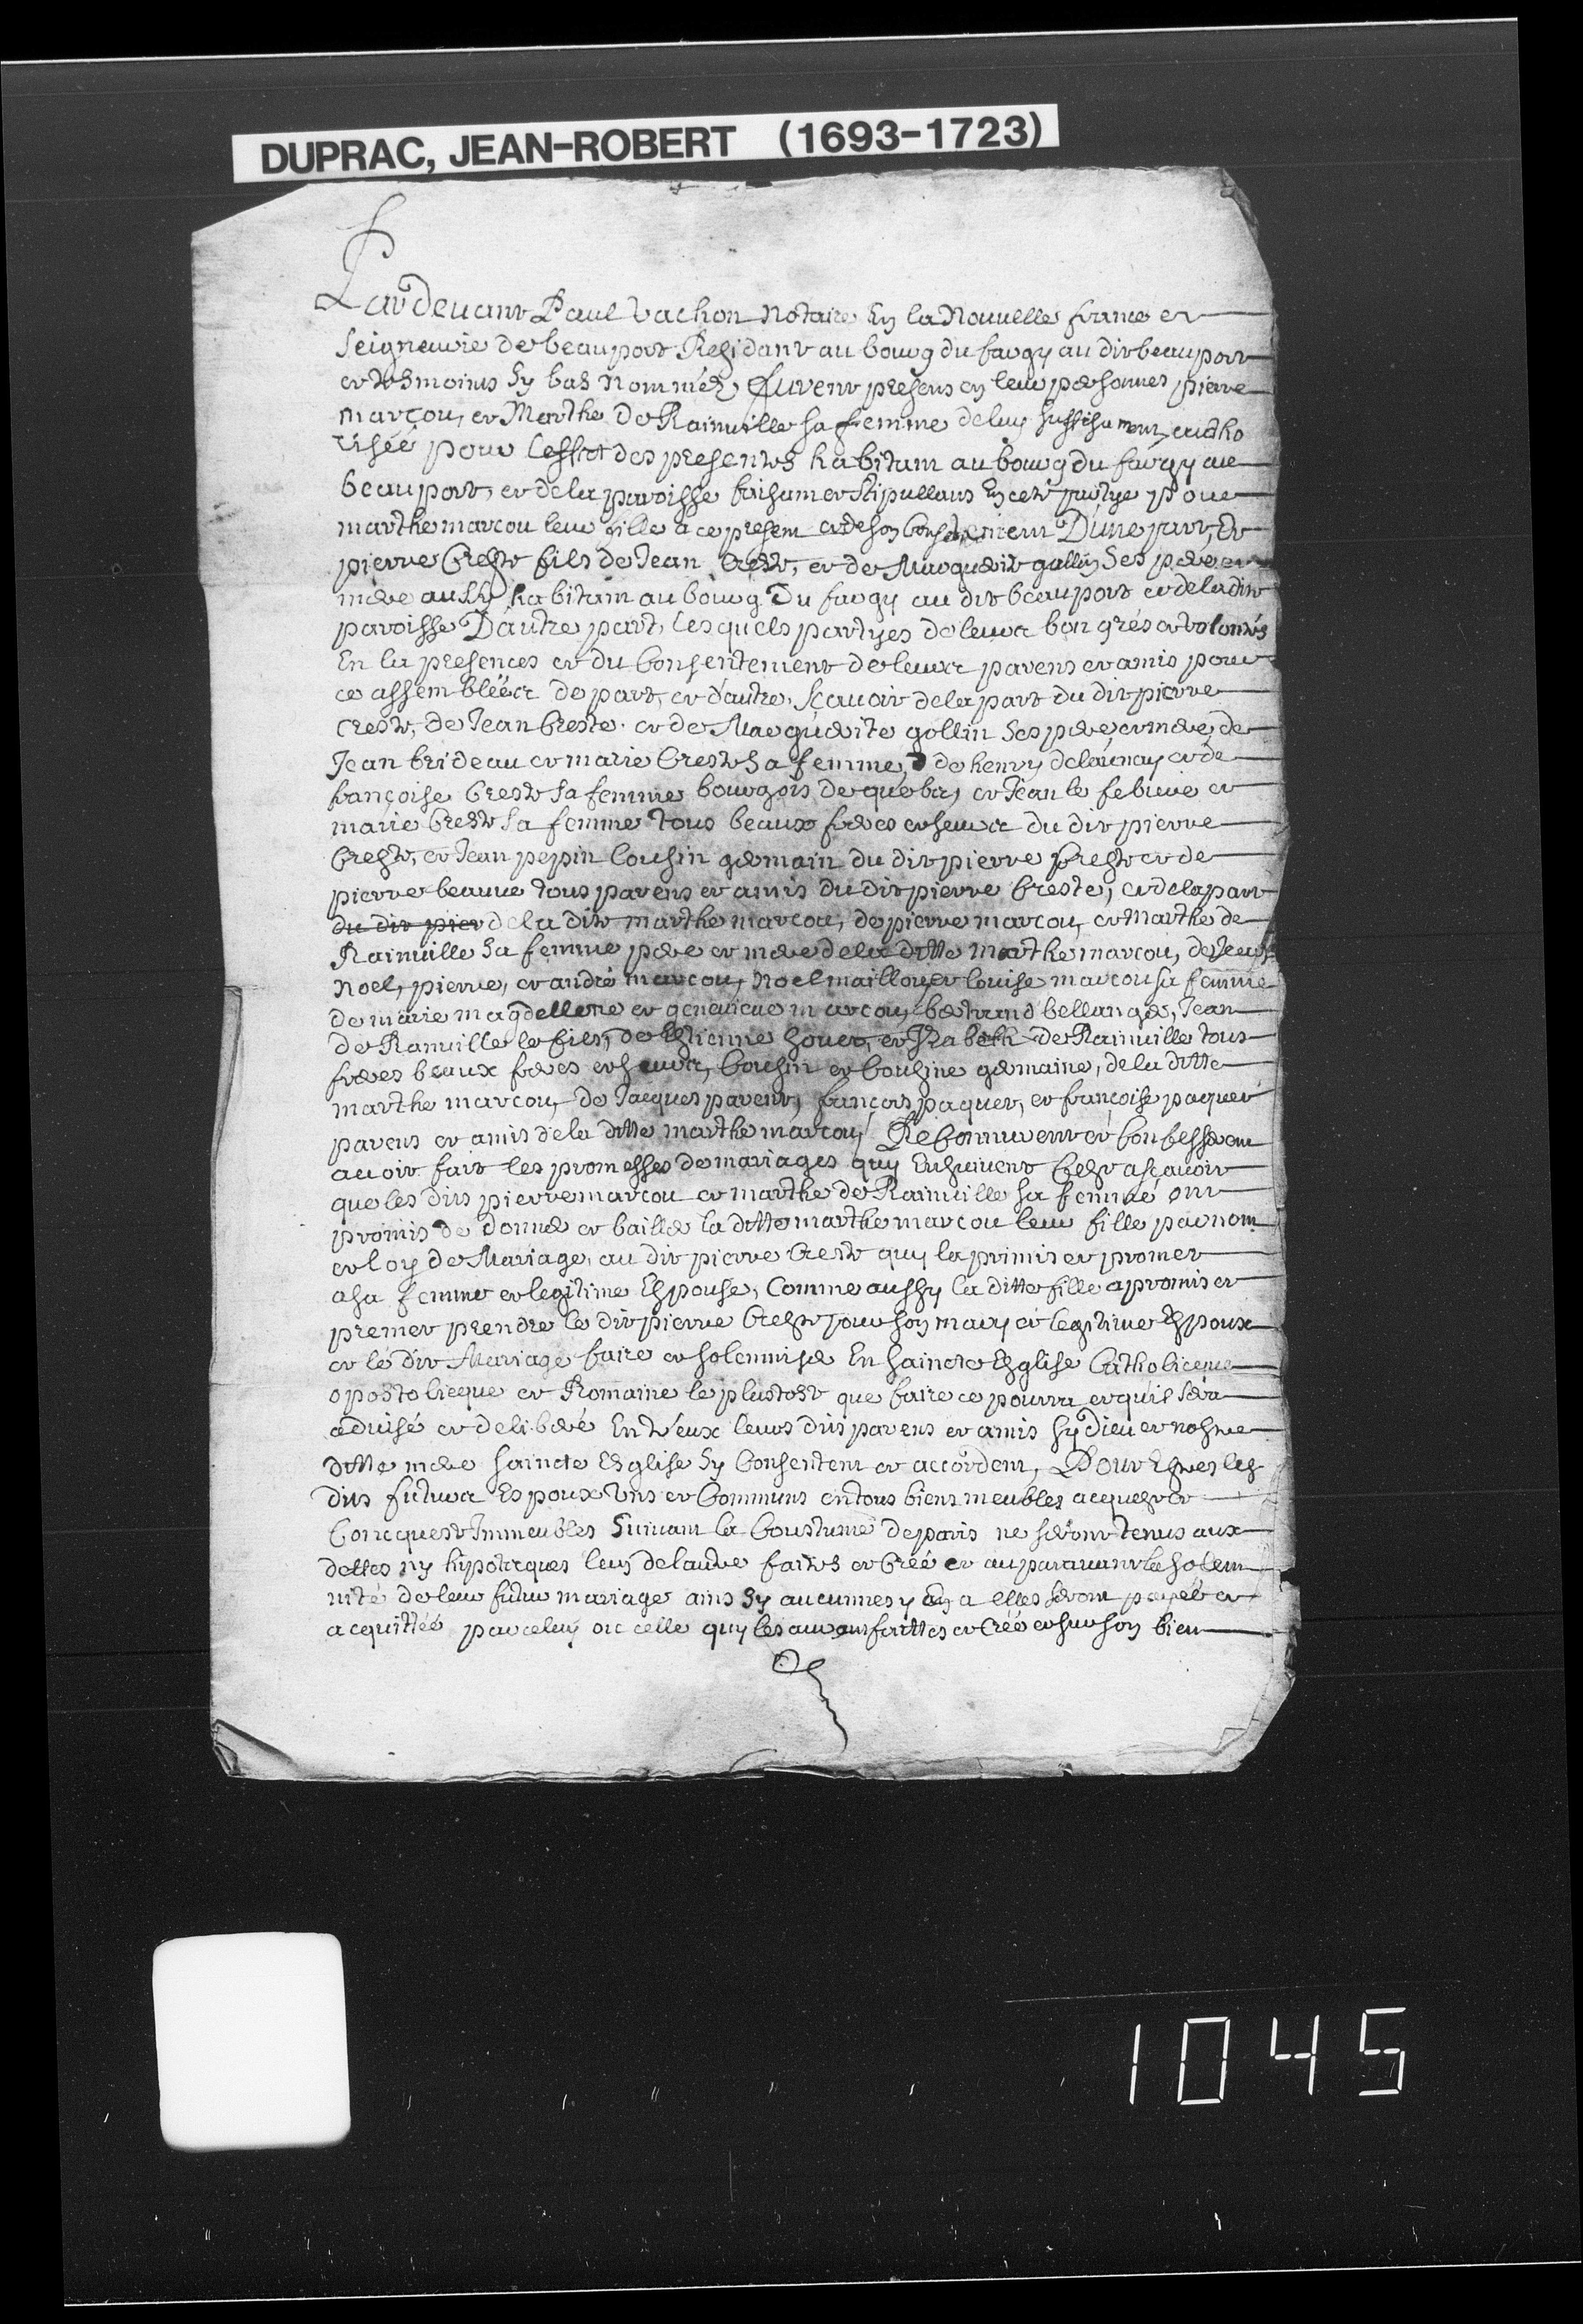 DUPRAC, JEAN-ROBERT (1693-1723)
Pardevant Paul Vachon Notaire En la Nouvelle france et
Seigneurie de beauport Residant au bourg du fargy au dit beauport
et tesmoins sy bas Nommés, furent presens en leur personnes pierre
marcou, et Marthe De Rainville sa femme de luy suffisament autho
risée pour l'effect des presentes habitant au bourg du fargy au
beauport, et de la paroisse faisant et stipullans En cete partye pour
marthe marcou leur fille a ce present et de son Consentement D'une part, Et
pierre Creste fils de Jean Creste, et de Marguerite gollin Ses pere et
mere aussy habitant au bourg Du fargy au dit beauport et de la dite
paroisse D'autre part, Lesquels partyes de leurs bon grés et volontés
En la presences et du Consentement de leurs parens et amis pour
ce assemblées de part, et d'autre, Sçavoir de la part du dit pierre
Creste, de Jean Creste et de Marguerite gollin Ses pere et mere, de
Jean brideau et marie Creste sa femme, de henry delaunay et de
françoise Creste sa femme bourgois de quebec, et Jean le febure et
marie Creste sa femme tous beaux freres et seurs du dit pierre
Creste, et Jean pepin Cousin germain du dit pierre Creste et de
pierre beaune tous parens et amis du dit pierre Creste, et de la part
du dit pier de la dite marthe marcou, de pierre marcou, et Marthe de
Rainville sa femme pere et mere de la ditte marthe marcou, de
Noel, pierre, et andré marcou, Noel mailloux et louise marcou sa femme
de marie magdellene et genevieve marcou, bertrand bellanger, Jean
de Rainville le fils, de Estienne et Isabelle de Rainville tous
freres beaux freres et seurs, Cousin et Cousine germaine, de la ditte
marthe marcou, de Jacques parent, françois paquet, et françoise paquet
parens et amis de la ditte marthe marcou, Reconnurent et Confesserent
avoir fait les promesses de mariages quy Ensuivent Cest asçavoir
que les dits pierre marcou et marthe de Rainville sa femme ont
promis de donner et bailler la ditte marthe marcou leur fille par nom
et loy de Mariage, au dit pierre Creste quy la primis et promet
a sa femme et legitime Espouse, Comme aussy la ditte fille a promis et
premet prendre le dit pierre Creste pour son mary et legitime Espoux
et le dit Mariage faire et solemniser En saincte Esglise Catholicque
opostolicque et Romaine le plustost que faire ce pourra et qu'il sera
advisé et deliberé Entr'eux leurs dits parens et amis sy dieu et nostre
ditte mere saincte Esglise sy Consentent et accordent, Pour Estres les
dits futurs Espoux Unis et Communs en tous biens meubles acquest et
Concquest Immeubles Suivant la Coustume de paris ne seront tenus aux
dettes ny hipotecques l'un de l'autre faites et Créé et auparavant la solem
nité de leur futur mariage ains sy aucunnes y en a elles seront payée et
acquittée par celuy ou celle quy les auront faittes et Créé et sur son bien
1045